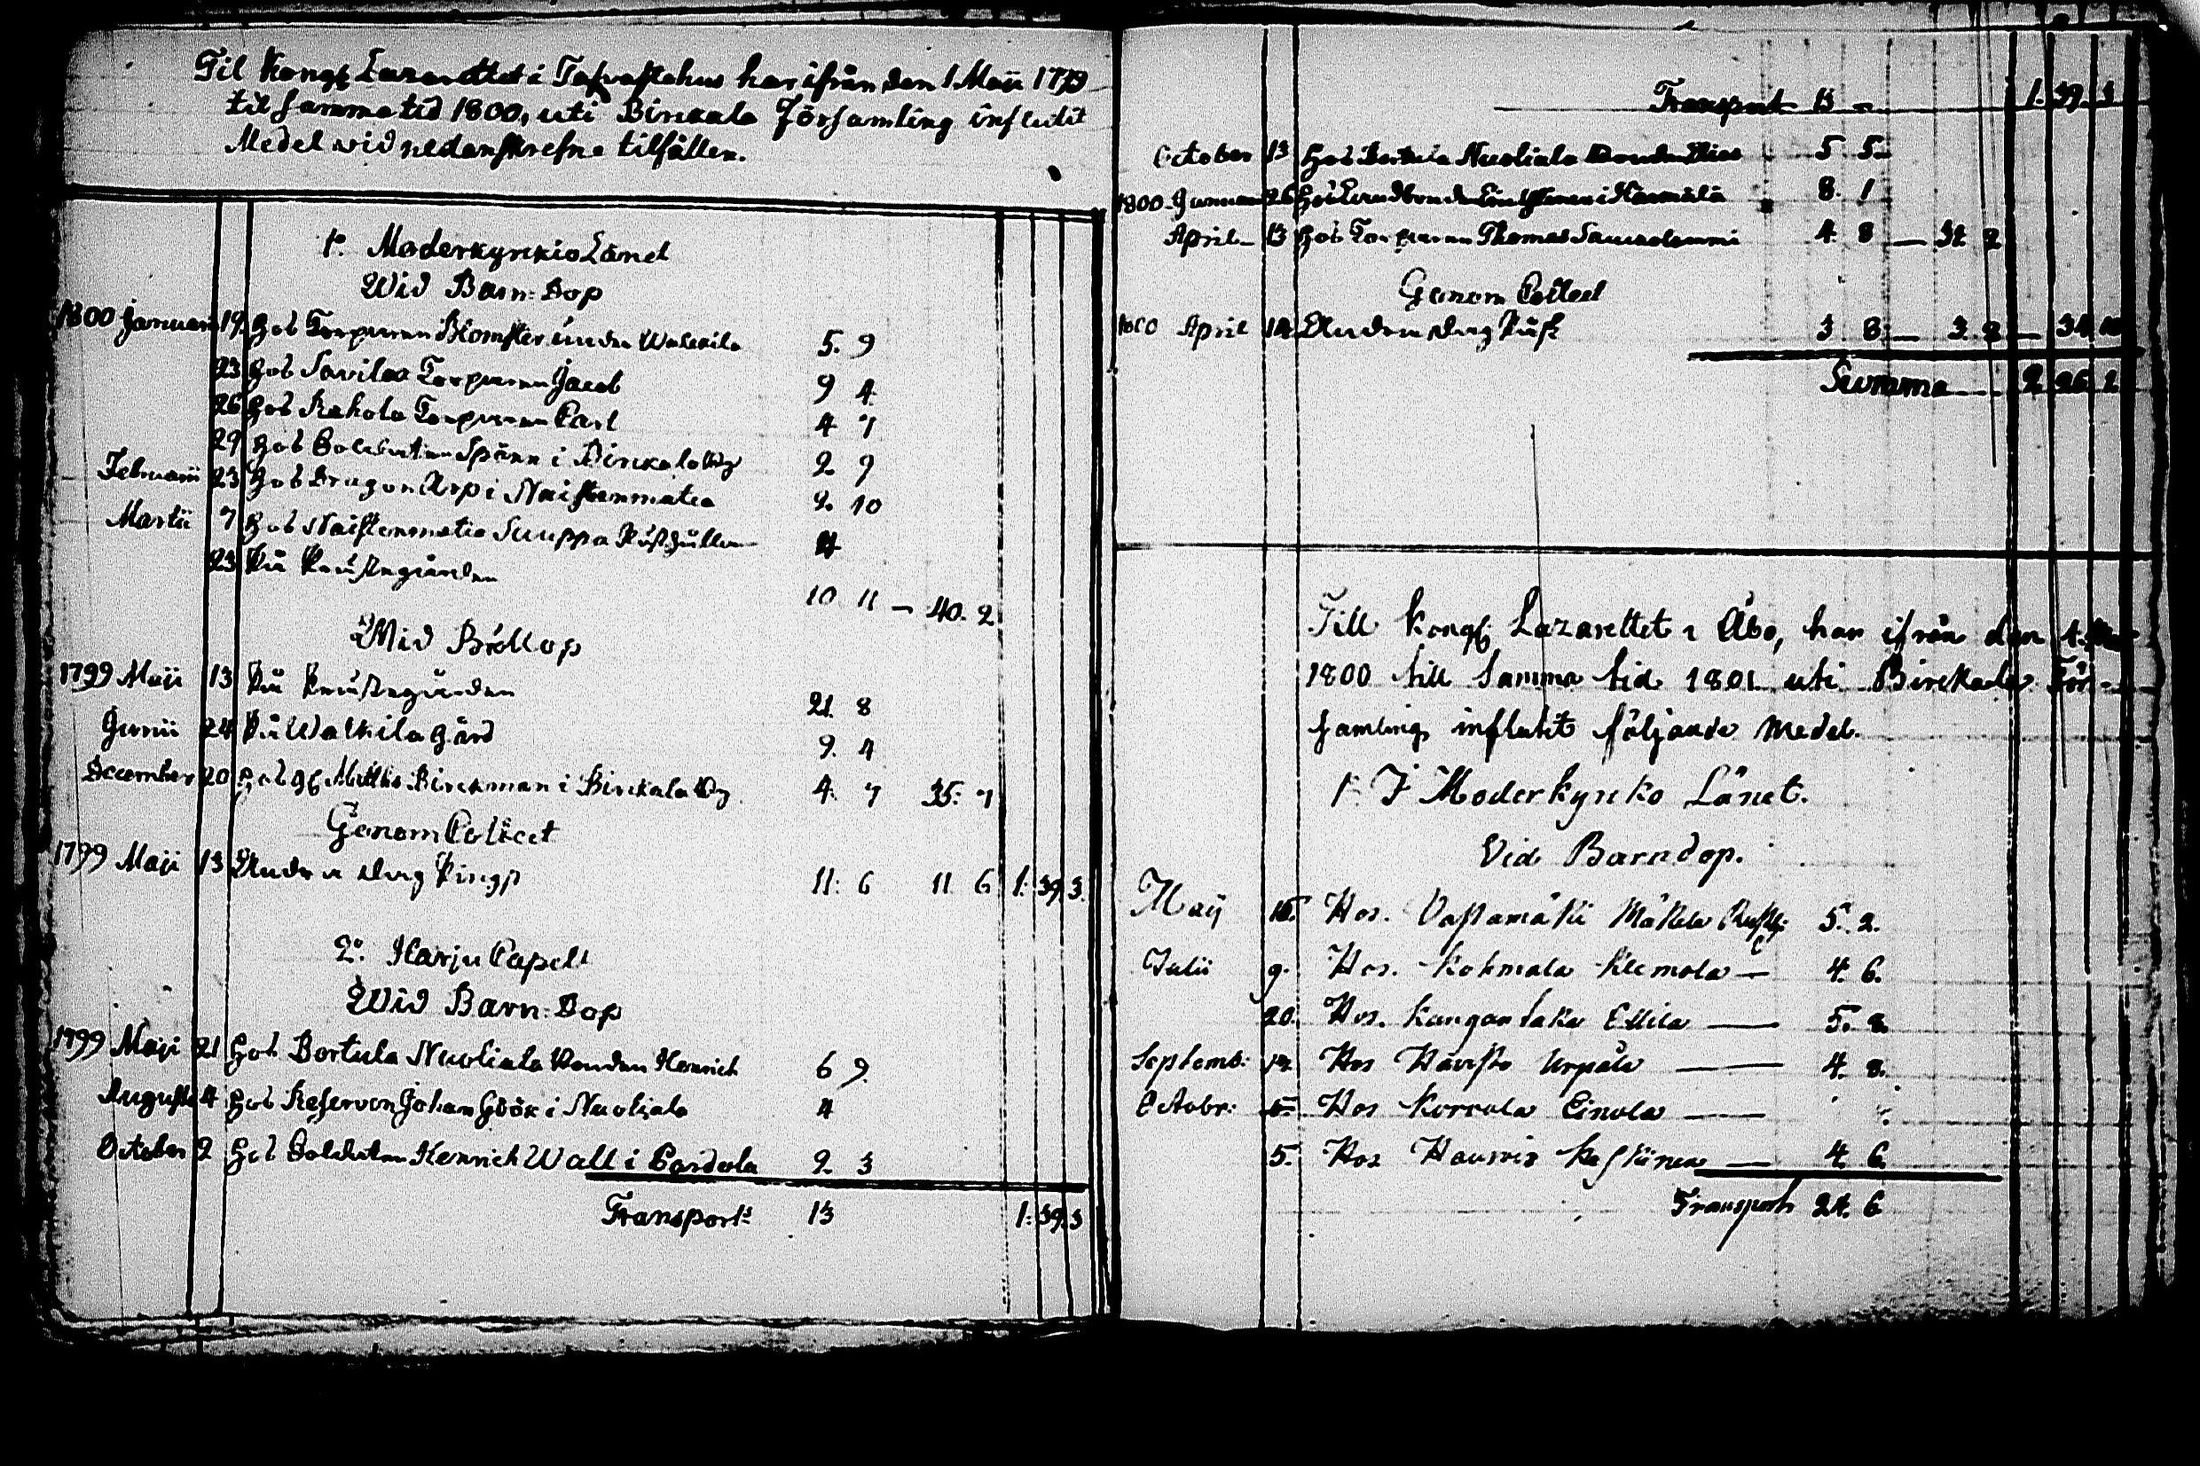 Til Kongl Lazarettet i Tafvastehus har ifrån den 1 Maii 1799
til samma tid 1800, uti Birckala Församling influtit
Medel wid nedanskrefne tilfällen.
1º Moderkyrckio Länet
Wid Barn-Dop
1800 Januarii 19. Hos Torparen Blomster under Walckila 5. 9
23 Hos Savilax Torparen Jacob 9 4
26 Hos Kahola Torparen Carl 4 7
29 Hos Soldaten Spänn i Birckala By 2 9
Februarii 23 Hos Dragon Arp i Naistenmatca 2. 10
Martii 7 Hos Naistenmatca Suuppa 4
23 På Prästegården 10 11 — 40. 2
Wid Bröllop
1799 Maji 13 På Prästegården 21 8
Junii 24 På Walkila Gård 9. 4
December 20 Hos Matths Birckman i Birckala By 4. 7 35. 7
Genom Collect
1799 Maji 13 Andra dag Pingst 11: 6 11 6 1: 39 3.
2º Harju Capell
Wid Barn-Dop
1799 Maji 21 Hos Bertula Nuoliala Bonden Henrich 6 9.
Augusti 4 Hos Reserven Johan Göök i Nuoliala 4
October 2 Hos Soldaten Henrich Wall i 2 3
Transport 13 1: 39 3
Transport 13 — 1. 39 3
October 13 Hos Bertula Nuoliala Bonden Elias 5 5.
1800 Januarii 26 Hos i Härmälä 8. 1
April 13 Hos Torparen Thomas 4 8 — 31 2
Genom Collect
1800 April 14 Andra dag Påsk 3 8 — 3. 8 — 34 10
Summa 2 26 1
Till Kongl Lazarettet i Åbo, har ifrån den 1. Maii
1800 till samma tid 1801 uti Birckala För-
samling influtit följande Medel.
1º I Moderkyrko Länet.
Vid Barndop.
Maij 15. Hos. Vastamäki Mäkela 5. 2.
Julii 9. Hos. Kohmala Klemola — 4. 6.
20. Hos. Kangantaka Ellila — 5. 8.
Septemb: 14. Hos Havisto Urpala — 4. 8.
Octobr: 5. Hos Korvola Einola —
5. Hos Keskinen — 4. 6.
Transport 24. 6